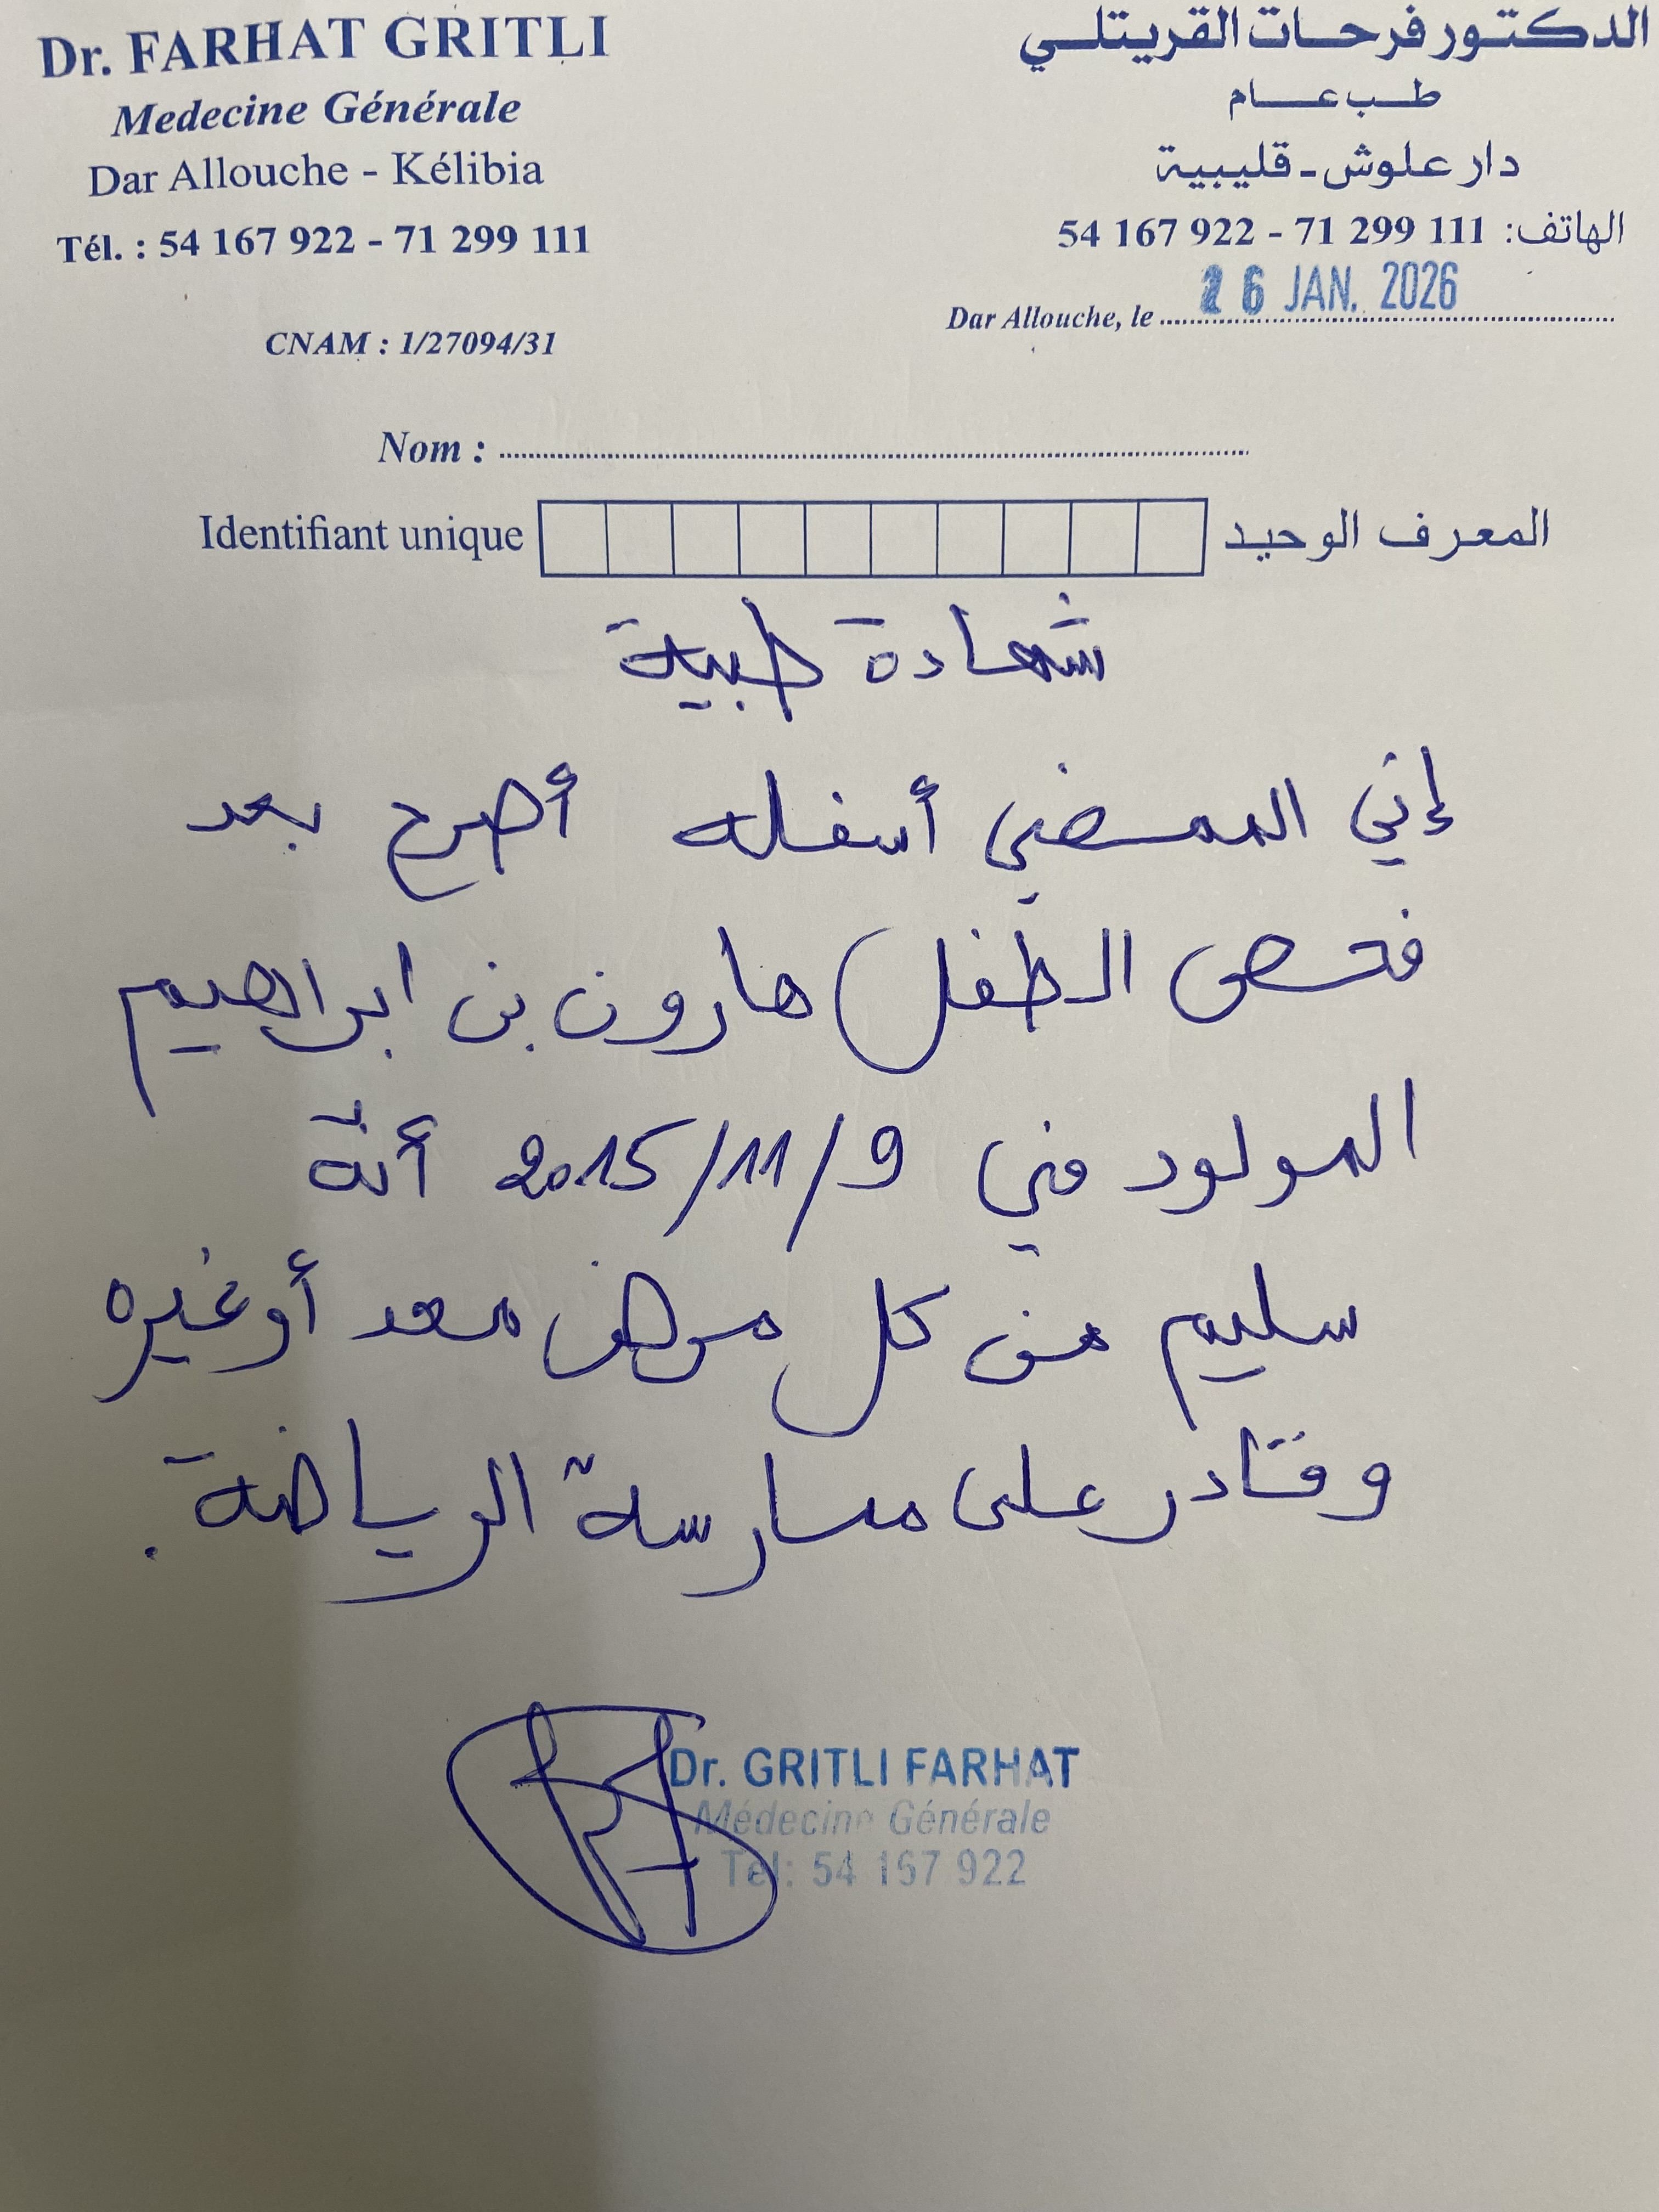 Dr. FARHAT GRITLI
Medecine Générale
Dar Allouche - Kélibia
Tél. : 54 167 922 - 71 299 111
CNAM : 1/27094/31
الدكتور فرحات القريتلي
طب عام
دار علوش - قليبية
الهاتف: 54 167 922 - 71 299 111
Dar Allouche, le 26 JAN. 2026
Nom :
Identifiant unique المعرف الوحيد
شهادة طبية
إني الممضي أسفله أصرح بعد
فحص الطفل هارون بن ابراهيم
المولود في 9/11/2015 أنّه
سليم من كل مرض معد أو غيره
وقادر على ممارسة الرياضة.
Dr. GRITLI FARHAT
Médecine Générale
Tél: 54 167 922